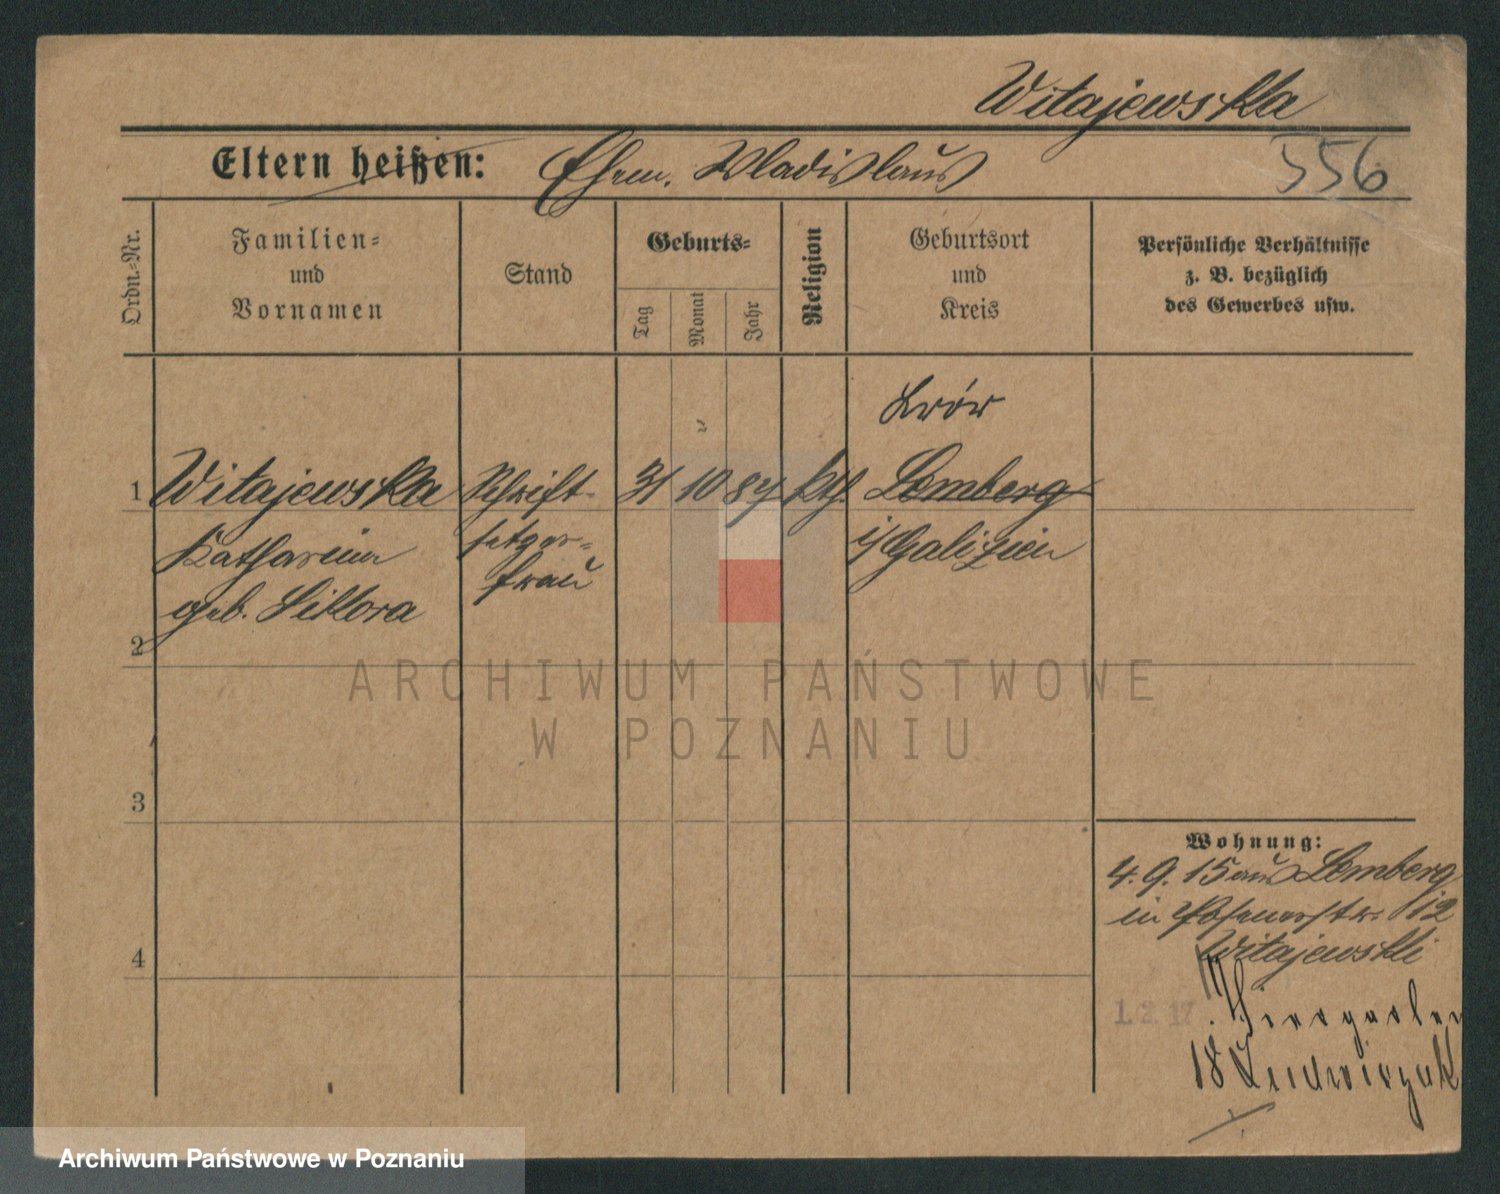 Witajewska
Eltern heißen: Ehem. Wladislaus
556
Ordn.-Nr.
Familien-
und
Vornamen
Stand
Geburts-
Tag
Monat
Jahr
Religion
Geburtsort
und
Kreis
Persönliche Verhältnisse
z. B. bezüglich
des Gewerbes usw.
1 Witajewska Schrift- 31 10 87 kth. Lemberg
Katharina setzer- i/Galizien
geb. Sikora frau
2
3
4
Wohnung:
4. 9. 15 aus Lemberg
in Posenerstr. 12
Witajewski
1. 2. 17. Tiergarten
18 Ludwiczak
ARCHIWUM PAŃSTWOWE
W POZNANIU
Archiwum Państwowe w Poznaniu